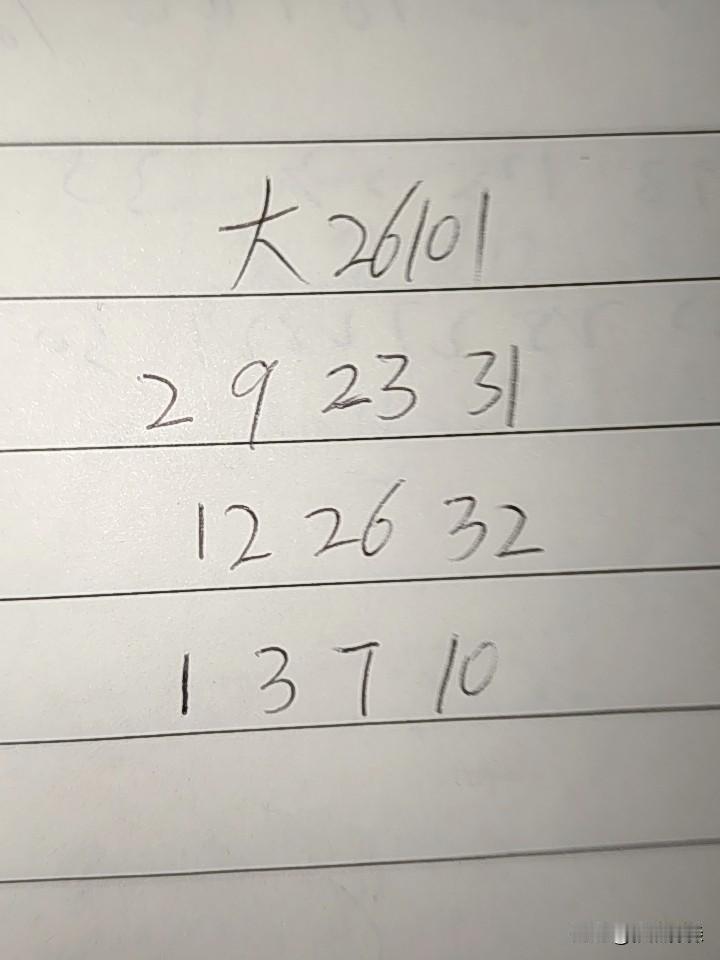 大26101
2 9 23 31
12 26 32
1 3 7 10